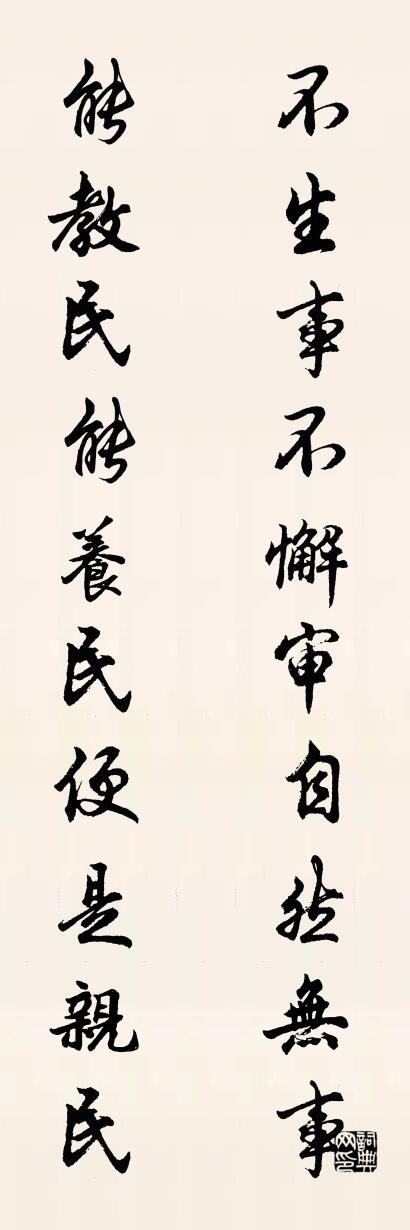 不生事不懈审自然無事
能教民能養民便是親民
詞典網印